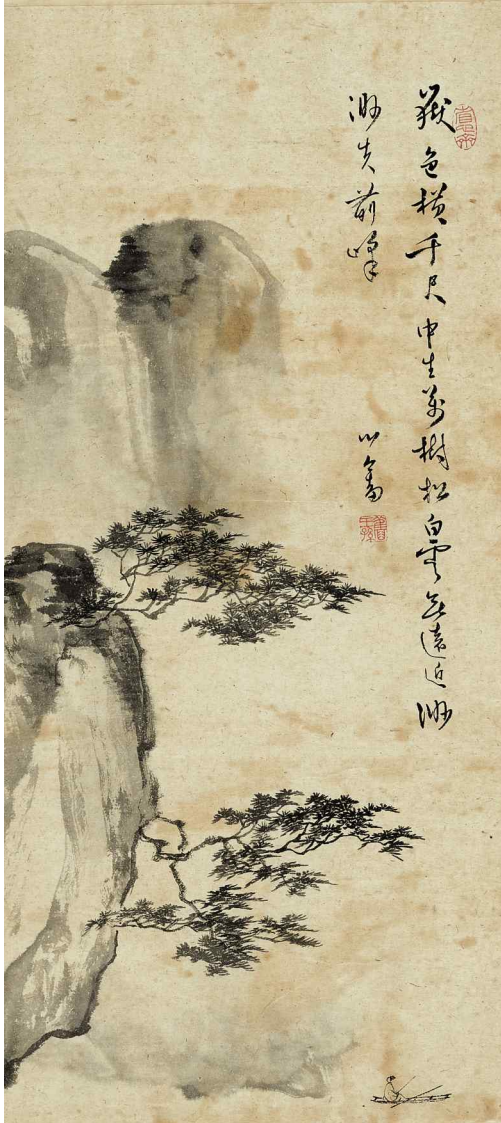 嶽色橫千尺中生萬樹松白雲無遠近渺
渺失前峰
心畬